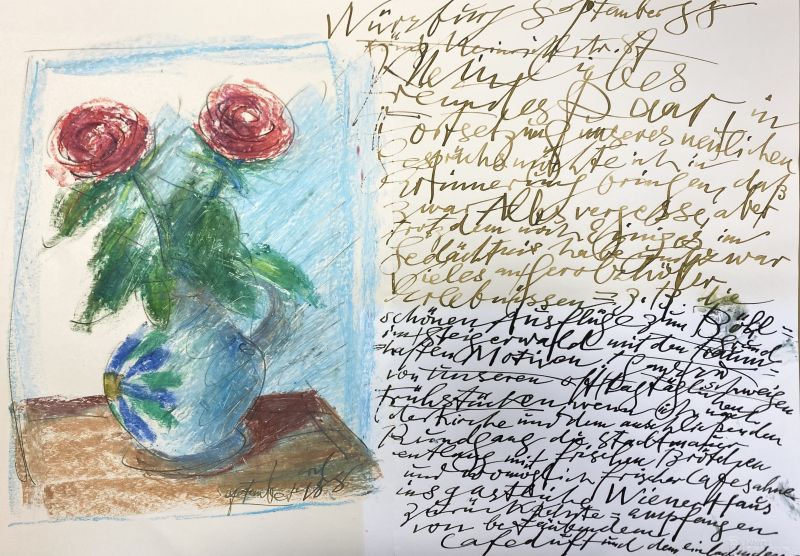 Würzburg September 88
Heinrichstr.
Ihr
Freundespaar, in
Fortsetzung unseres neulichen
Gesprächs möchte ich in
Erinnerung bringen, daß
zwar Alles vergesse, aber
trotzdem noch Einiges im
Gedächtnis habe und zwar
Vieles an
Erlebnissen = z.B. die
schönen Ausflüge zum
im Steigerwald mit den traum=
haften Motiven
von unseren oft
Frühstücken wenn ich nach
der Kirche und dem anschließenden
Rundgang die Stadtmauer
entlang mit frischen Brötchen
und womöglich frischer Cafesahne
ins gastliche Wienerhaus
zurückkehrte = empfangen
von betäubendem
Cafeduft und dem
September 88